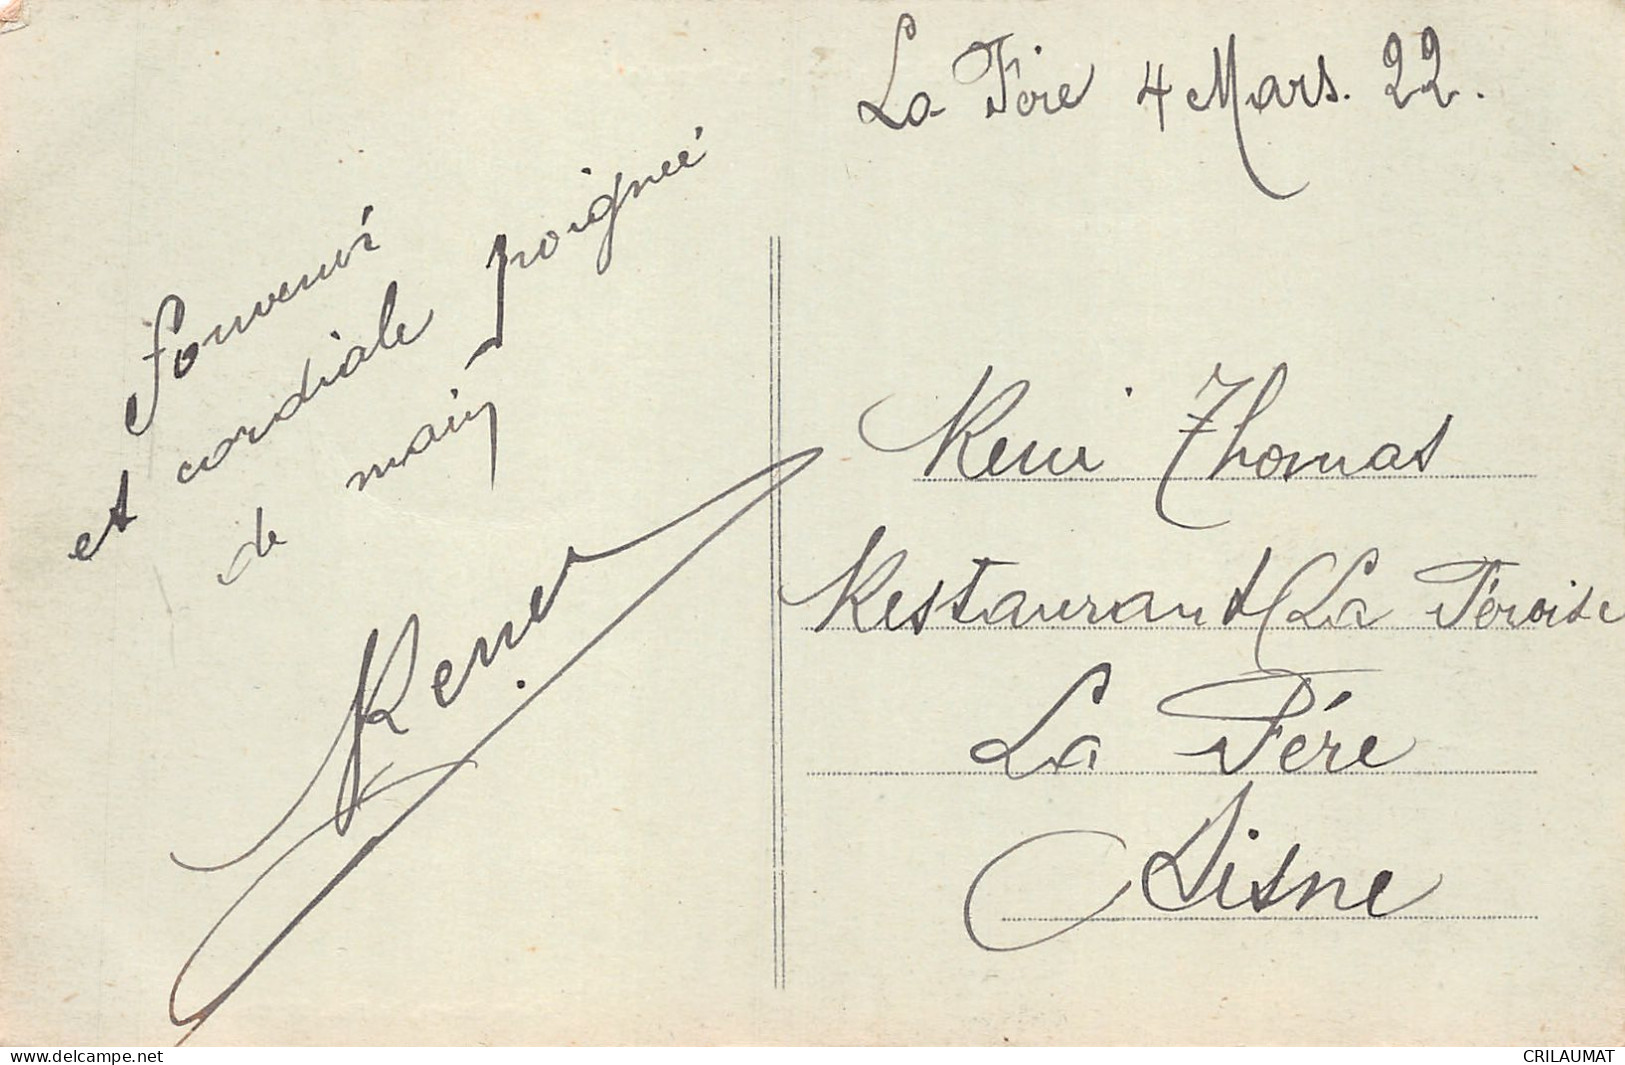 La Fère 4 Mars. 22.
Souvenir
et cordiale poignée
de main
Remi Thomas
Restaurant (La Féroise
La Fère
Aisne
www.delcampe.net
CRILAUMAT